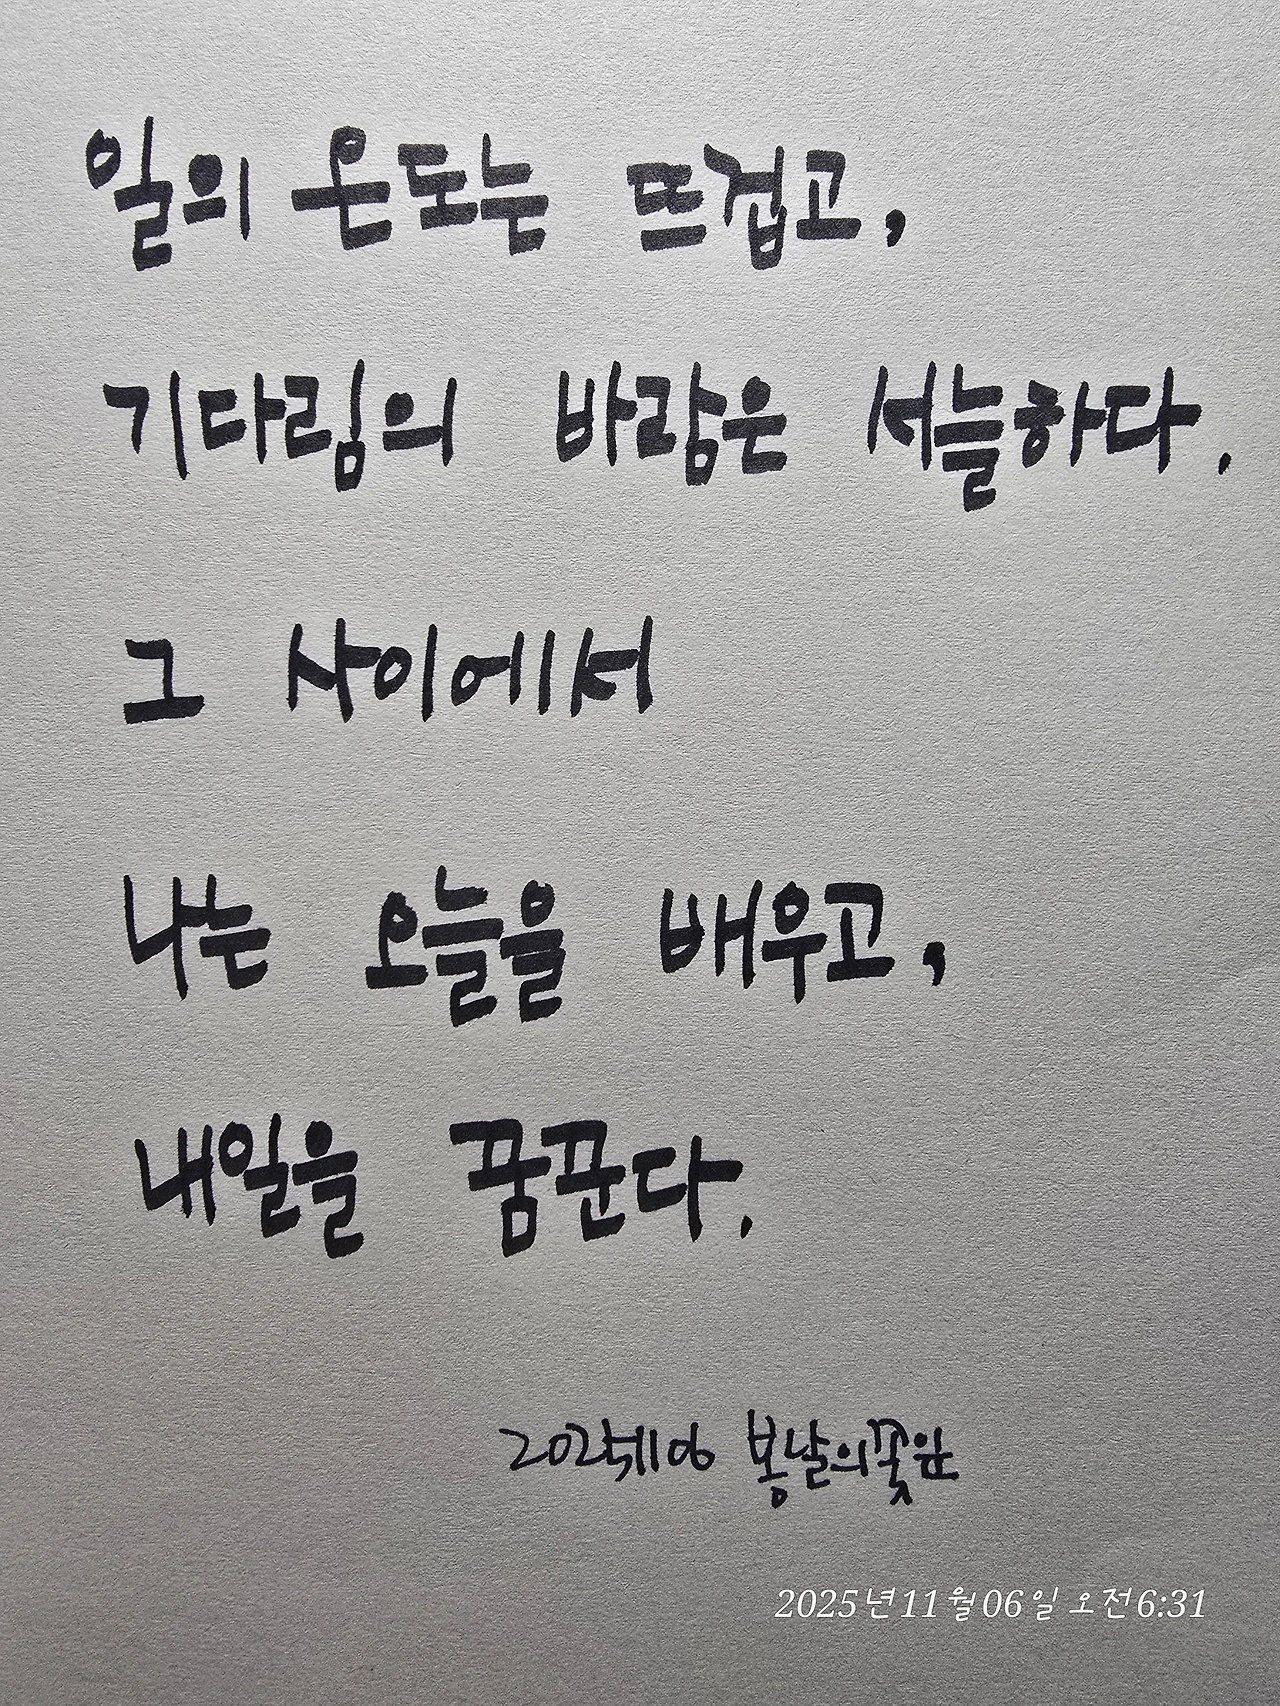 일의 온도는 뜨겁고,
기다림의 바람은 서늘하다.
그 사이에서
나는 오늘을 배우고,
내일을 꿈꾼다.
20251106 봉날의꽃윤
2025년11월06일 오전6:31